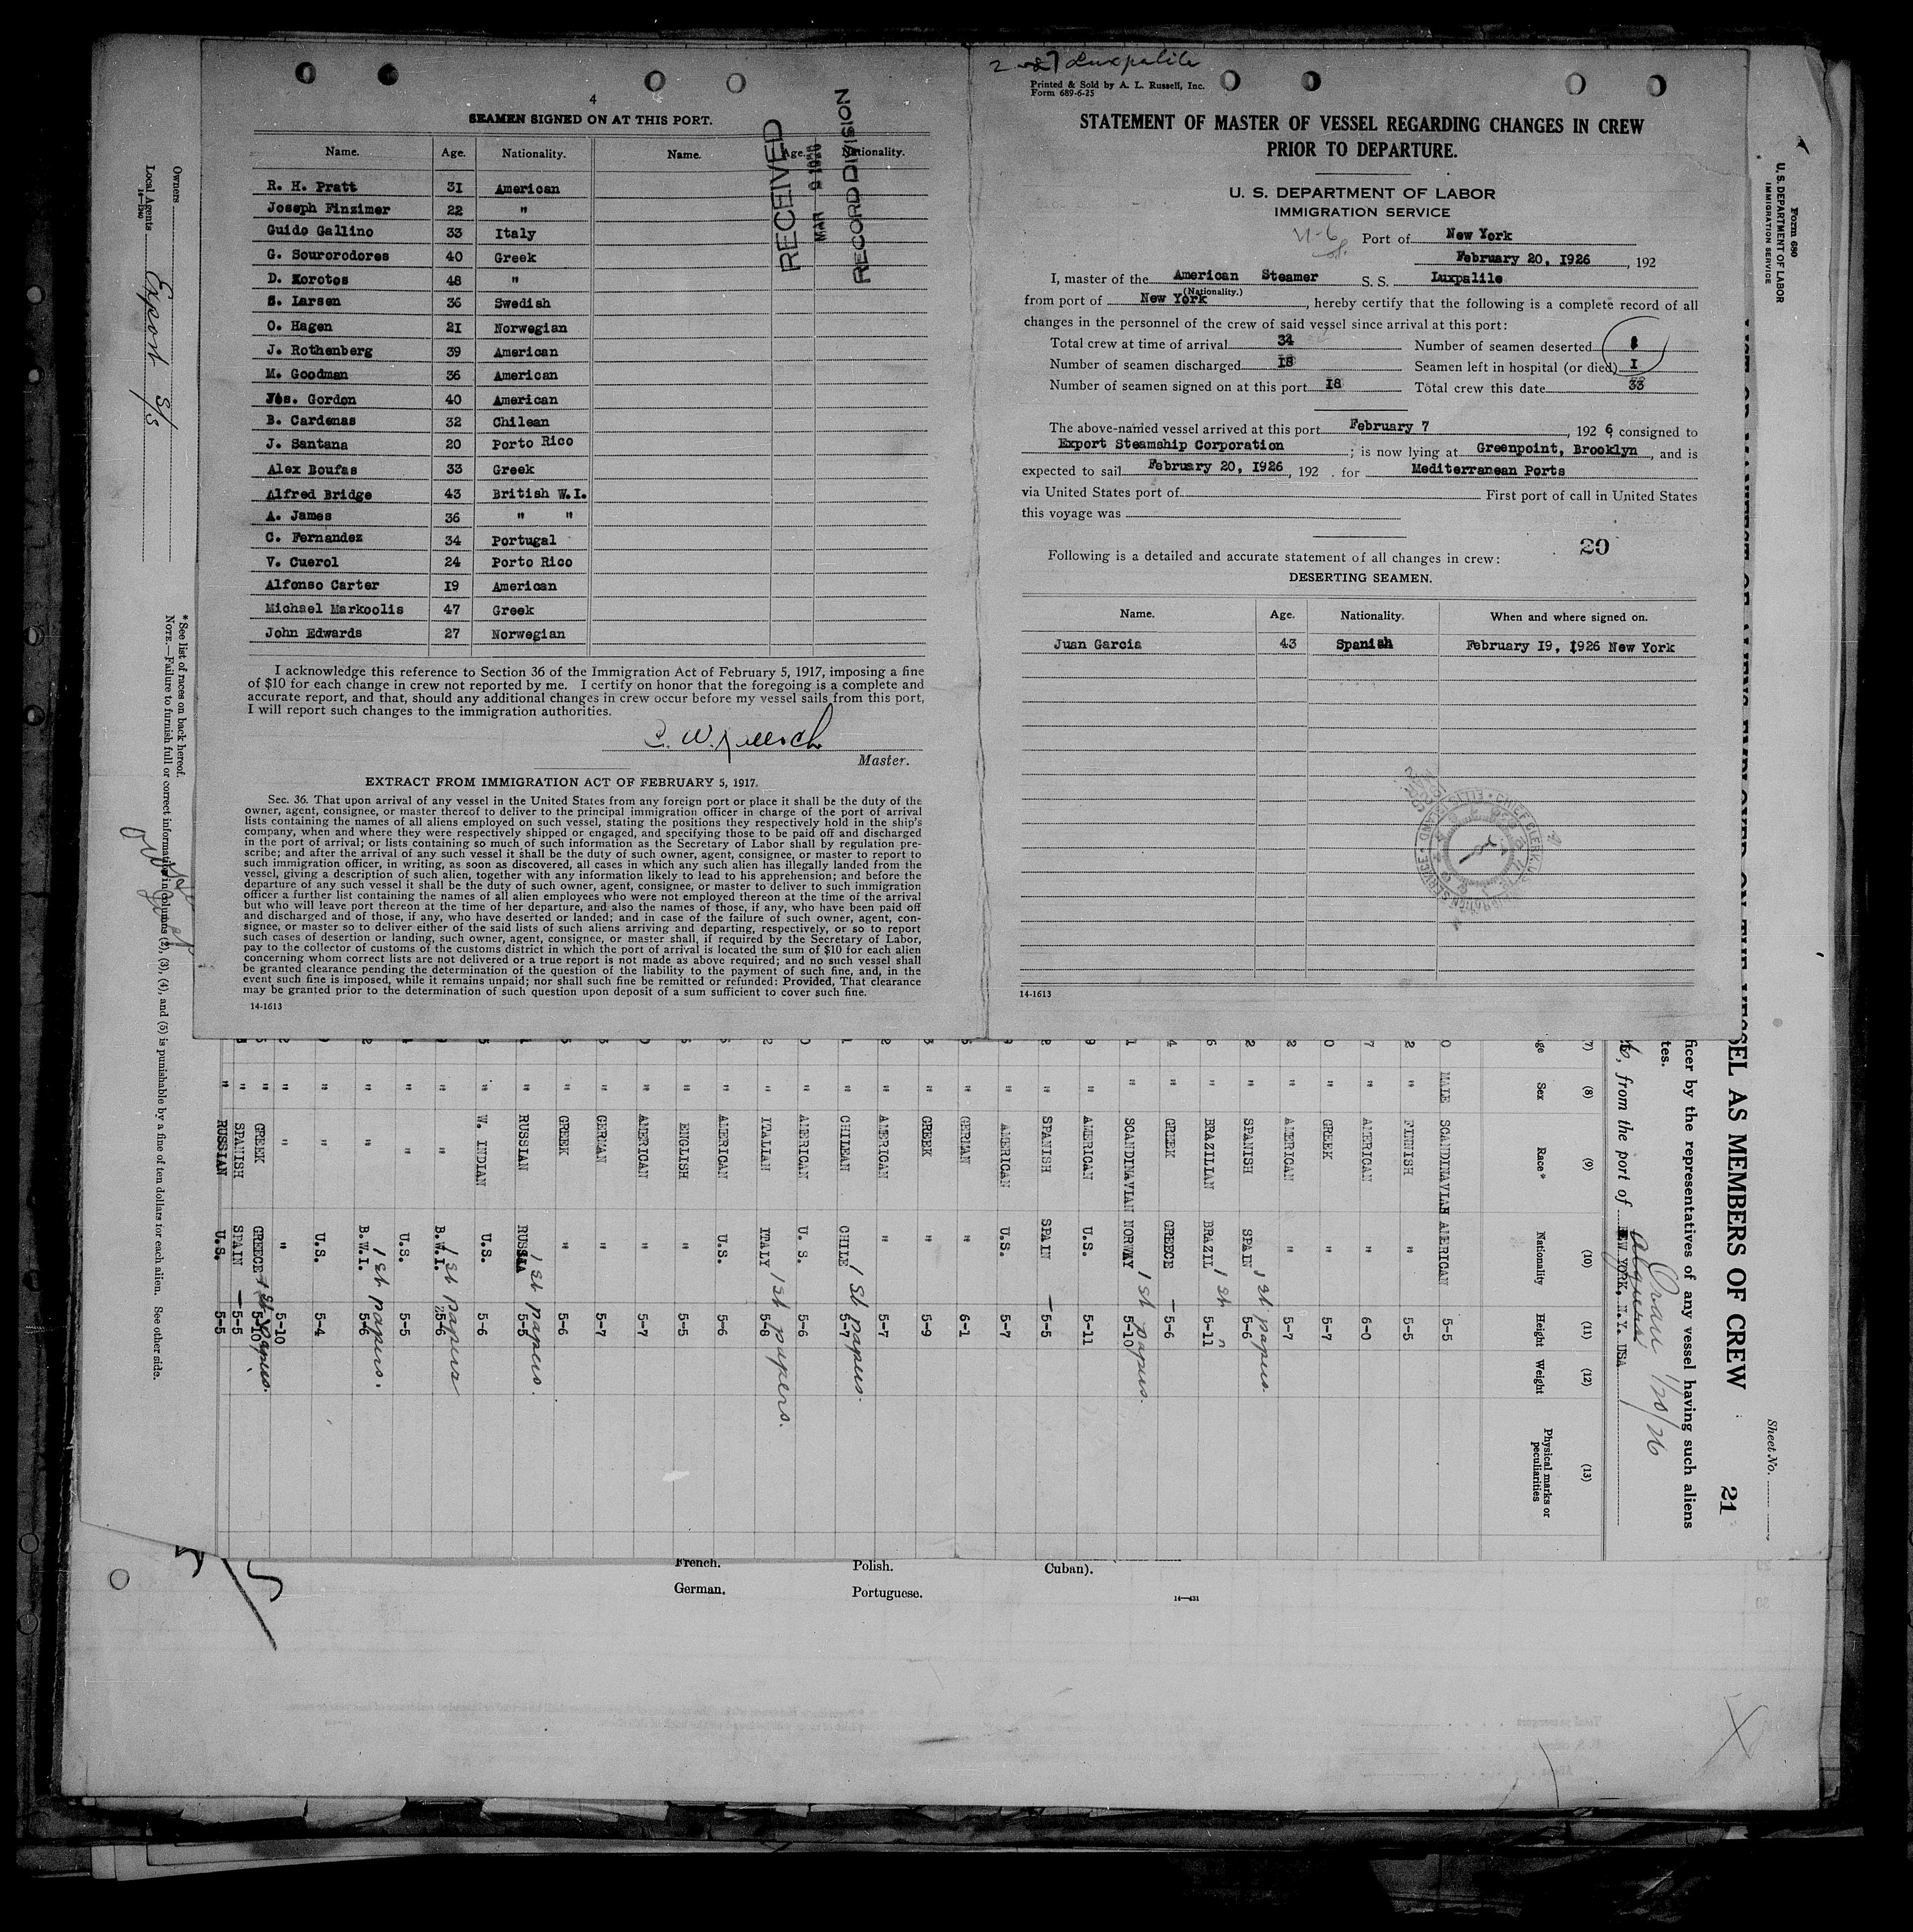 4
SEAMEN SIGNED ON AT THIS PORT.
Name. Age. Nationality. Name. Age. Nationality.
R. H. Pratt 31 American
Joseph Finzimer 22 "
Guido Gallino 33 Italy
G. Sourorodores 40 Greek
D. Korotos 48 "
S. Larsen 36 Swedish
O. Hagen 21 Norwegian
J. Rothenberg 39 American
M. Goodman 36 American
Jos. Gordon 40 American
B. Cardenas 32 Chilean
J. Santana 20 Porto Rico
Alex Boufas 33 Greek
Alfred Bridge 43 British W.I.
A. James 36 " "
C. Fernandez 34 Portugal
V. Cuerol 24 Porto Rico
Alfonso Carter 19 American
Michael Markoolis 47 Greek
John Edwards 27 Norwegian
RECEIVED
MAR 9 1926
RECORD DIVISION
I acknowledge this reference to Section 36 of the Immigration Act of February 5, 1917, imposing a fine
of $10 for each change in crew not reported by me. I certify on honor that the foregoing is a complete and
accurate report, and that, should any additional changes in crew occur before my vessel sails from this port,
I will report such changes to the immigration authorities.
Master.
EXTRACT FROM IMMIGRATION ACT OF FEBRUARY 5, 1917.
Sec. 36. That upon arrival of any vessel in the United States from any foreign port or place it shall be the duty of the
owner, agent, consignee, or master thereof to deliver to the principal immigration officer in charge of the port of arrival
lists containing the names of all aliens employed on such vessel, stating the positions they respectively hold in the ship's
company, when and where they were respectively shipped or engaged, and specifying those to be paid off and discharged
in the port of arrival; or lists containing so much of such information as the Secretary of Labor shall by regulation pre-
scribe; and after the arrival of any such vessel it shall be the duty of such owner, agent, consignee, or master to report to
such immigration officer, in writing, as soon as discovered, all cases in which any such alien has illegally landed from the
vessel, giving a description of such alien, together with any information likely to lead to his apprehension; and before the
departure of any such vessel it shall be the duty of such owner, agent, consignee, or master to deliver to such immigration
officer a further list containing the names of all alien employees who were not employed thereon at the time of the arrival
but who will leave port thereon at the time of her departure, and also the names of those, if any, who have been paid off
and discharged and of those, if any, who have deserted or landed; and in case of the failure of such owner, agent, con-
signee, or master so to deliver either of the said lists of such aliens arriving and departing, respectively, or so to report
such cases of desertion or landing, such owner, agent, consignee, or master shall, if required by the Secretary of Labor,
pay to the collector of customs of the customs district in which the port of arrival is located the sum of $10 for each alien
concerning whom correct lists are not delivered or a true report is not made as above required; and no such vessel shall
be granted clearance pending the determination of the question of the liability to the payment of such fine, and, in the
event such fine is imposed, while it remains unpaid; nor shall such fine be remitted or refunded: Provided, That clearance
may be granted prior to the determination of such question upon deposit of a sum sufficient to cover such fine.
14-1613
Luxpalile
Printed & Sold by A. L. Russell, Inc.
Form 689-6-25
STATEMENT OF MASTER OF VESSEL REGARDING CHANGES IN CREW
PRIOR TO DEPARTURE.
U. S. DEPARTMENT OF LABOR
IMMIGRATION SERVICE
Port of New York
February 20, 1926, 192
I, master of the American Steamer S. S. Luxpalile
(Nationality.)
from port of New York, hereby certify that the following is a complete record of all
changes in the personnel of the crew of said vessel since arrival at this port:
Total crew at time of arrival 34 Number of seamen deserted 1
Number of seamen discharged 18 Seamen left in hospital (or died) 1
Number of seamen signed on at this port 18 Total crew this date 33
The above-named vessel arrived at this port February 7, 192 6 consigned to
Export Steamship Corporation; is now lying at Greenpoint, Brooklyn, and is
expected to sail February 20, 1926, 192 . for Mediterranean Ports
via United States port of First port of call in United States
this voyage was
20
Following is a detailed and accurate statement of all changes in crew:
DESERTING SEAMEN.
Name. Age. Nationality. When and where signed on.
Juan Garcia 43 Spanish February 19, 1926 New York
14-1613
Form 680
U. S. DEPARTMENT OF LABOR
IMMIGRATION SERVICE
Sheet No.
SEL AS MEMBERS OF CREW
21
ficer by the representatives of any vessel having such aliens
tes.
, from the port of NEW YORK, N.Y. USA
Oran 1/20/26
Algiers
(7) (8) (9) (10) (11) (12) (13)
ge Sex Race* Nationality Height Weight Physical marks or peculiarities
0 MALE SCANDINAVIAN AMERICAN 5-5
2 " FINNISH " 5-5
7 " AMERICAN " 6-0
0 " GREEK " 5-7
2 " AMERICAN " 5-7
2 " SPANISH SPAIN 5-6 1st papers.
6 " BRAZILIAN BRAZIL 5-11 1st "
4 " GREEK GREECE 5-6
1 " SCANDINAVIAN NORWAY 5-10 1st papers.
9 " AMERICAN U.S. 5-11
2 " SPANISH SPAIN 5-5
9 " AMERICAN U.S. 5-7
6 " GERMAN " 6-1
3 " GREEK " 5-9
2 " AMERICAN " 5-7
1 " CHILEAN CHILE 5-7 1st papers.
0 " AMERICAN U. S. 5-6
2 " ITALIAN ITALY 5-8 1st papers.
6 " AMERICAN U.S. 5-6
6 " ENGLISH " 5-5
0 " AMERICAN " 5-7
5 " GERMAN " 5-7
5 " GREEK " 5-6
1 " RUSSIAN RUSSIA 5-5 1st papers.
5 " W. INDIAN U.S. 5-6
" " B.W.I. 5-6 1st papers
" " U.S. 5-5
2 " " B.W.I. 5-6 1st papers.
" " U.S. 5-4
2 " " " 5-10
" GREEK GREECE 5-10 1st papers.
" SPANISH SPAIN 5-5
" RUSSIAN U.S. 5-5
Owners
Local Agents Export S/S
14—1240
* See list of races on back hereof.
NOTE.—Failure to furnish full or correct information in columns (2), (3), (4), and (5) is punishable by a fine of ten dollars for each alien. See other side.
French. Polish. Cuban).
German. Portuguese.
14—431